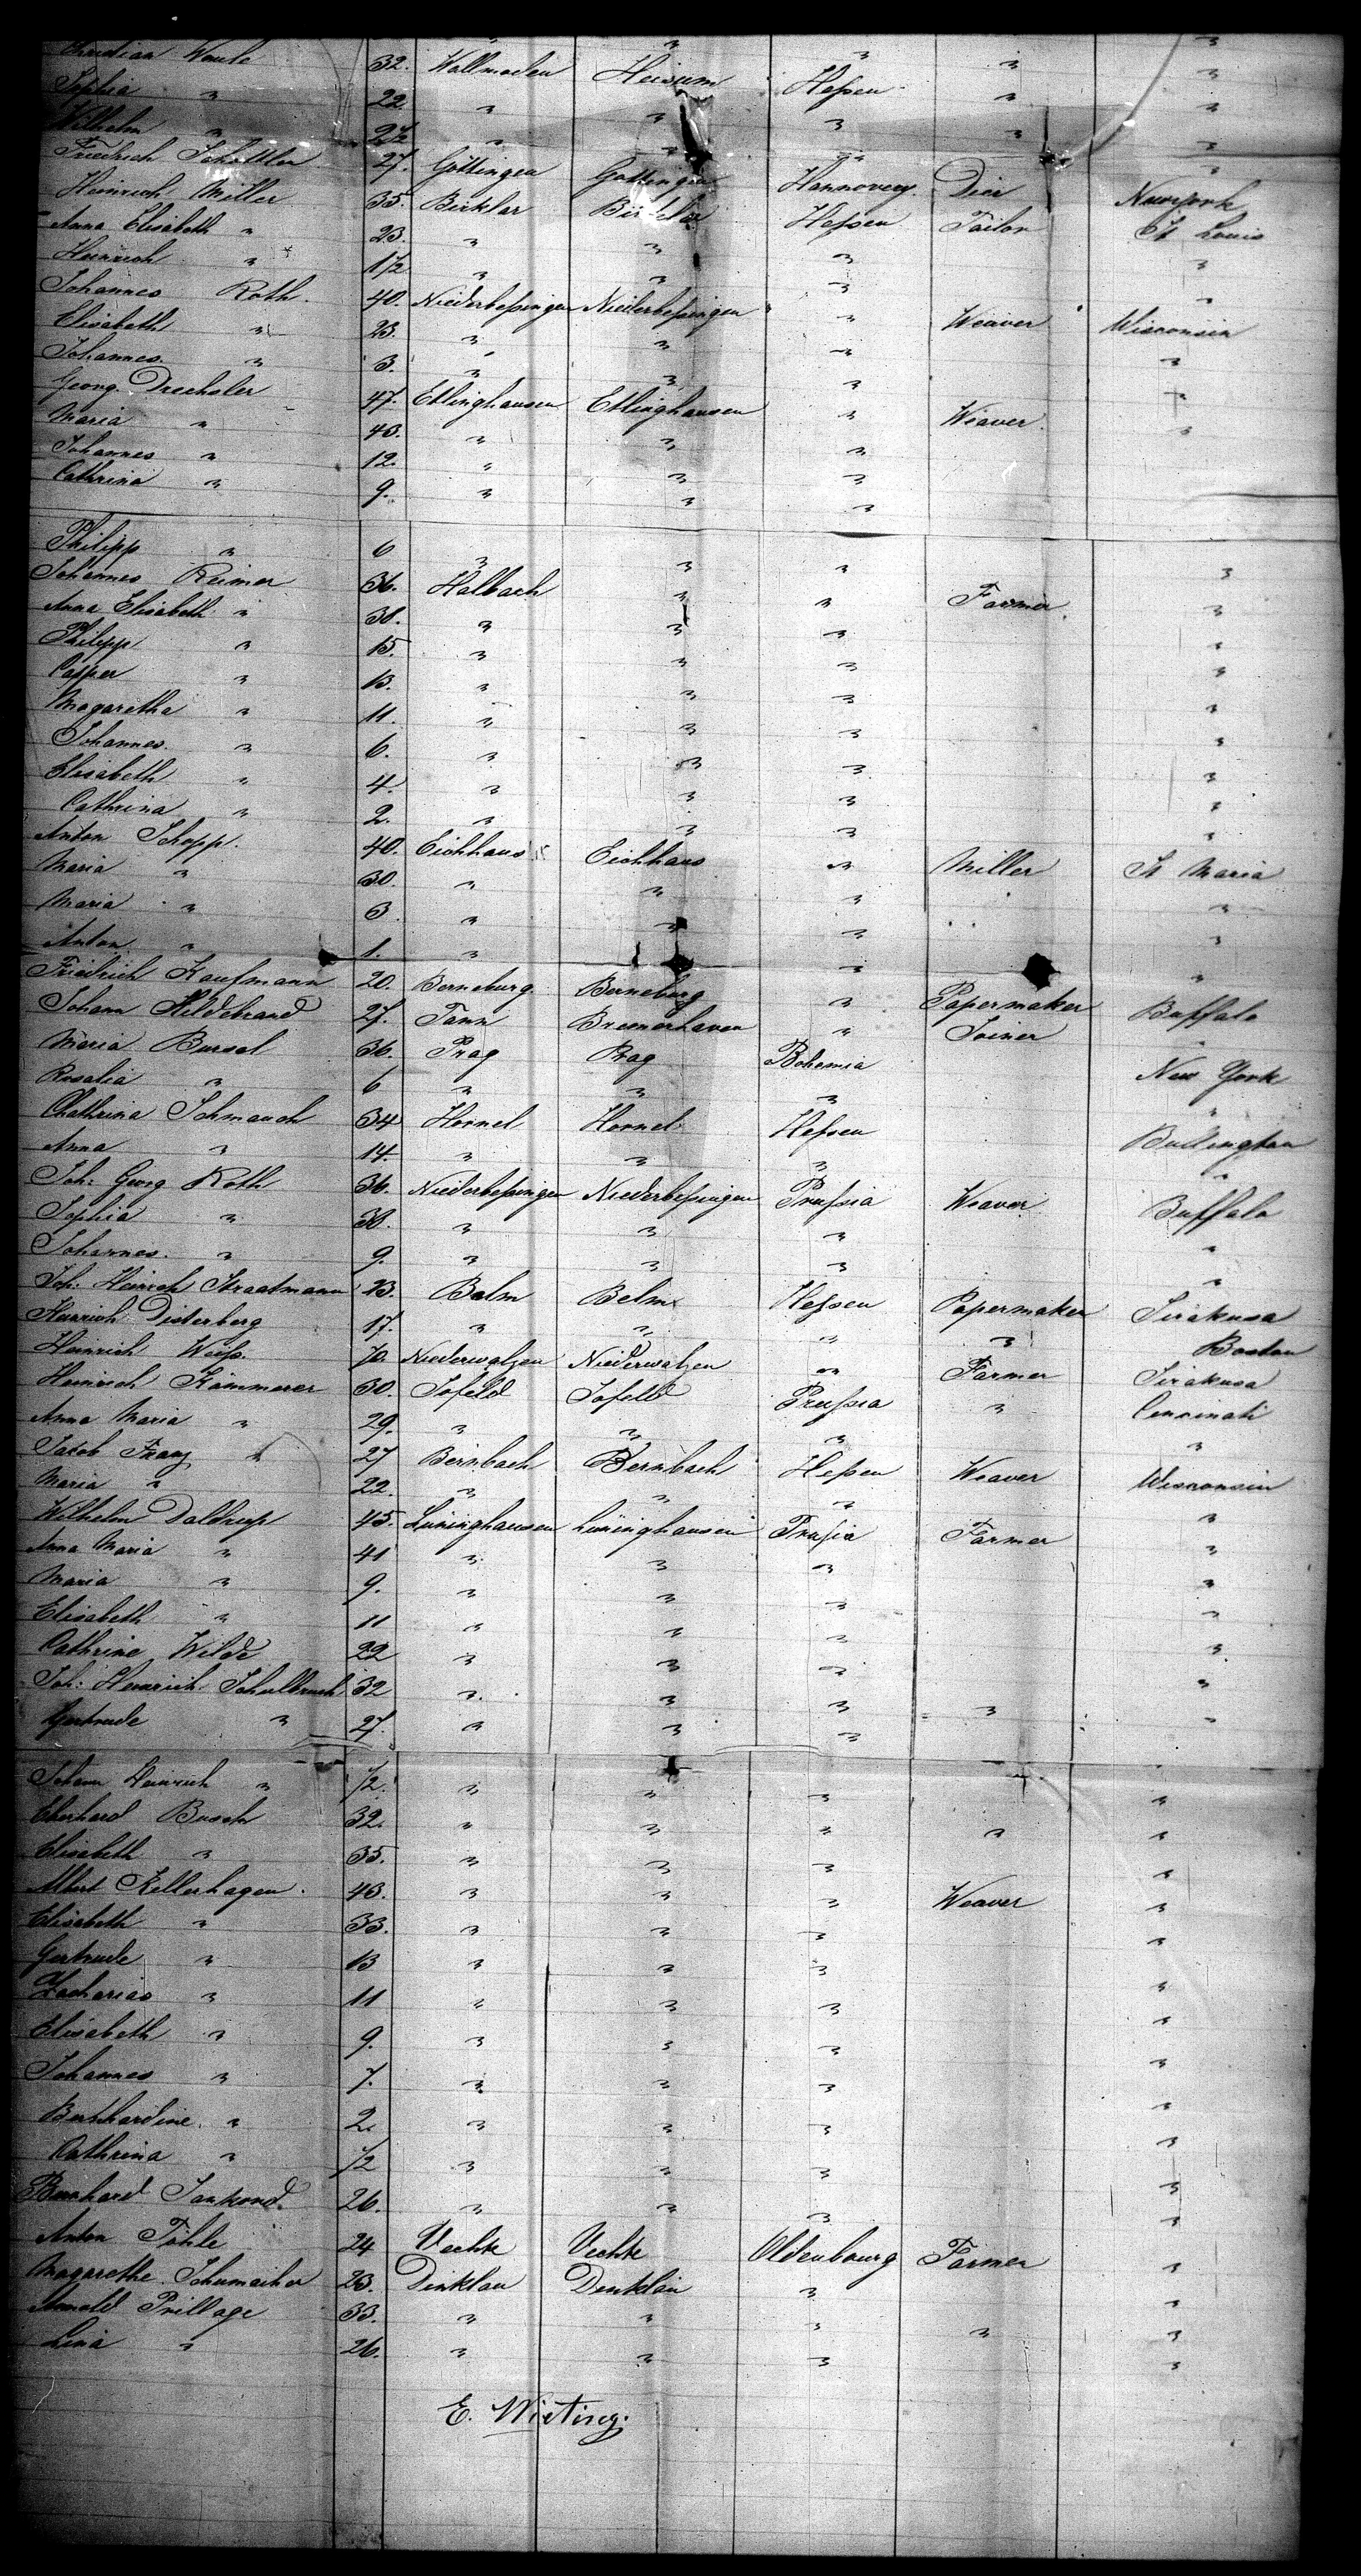 Christian 32. Wallmoden Heisum Hessen " "
Sophia " 22. " " " " "
Wilhelm " 2½ " " " " "
Friedrich Schottler 27. Göttingen Göttingen Hannover Dier Newyork
Heinrich Miller 35. Birklar Birklar Hessen Tailor St Louis
Anna Elisabeth " 23. " " " "
Heinrich " 1½ " " " "
Johannes Roth. 40. Niederbessingen Niederbessingen " Weaver Wisconsin
Elisabeth " 23. " " " "
Johannes. " 3. " " " "
Georg Drechsler 47. Ettinghausen Ettinghausen " Weaver. "
Maria " 43. " " " "
Johannes " 12. " " "
Cathrina " 9. " " "
Philipp " 6 " " " "
Johannes Reimer 36. Halbach " " Farmer "
Anna Elisabeth " 38. " " " "
Philipp " 15. " " " "
Casper " 13. " " " "
Magaretha " 11. " " " "
Johannes. " 6. " " " "
Elisabeth " 4. " " " "
Cathrina " 2. " " " "
Anton Schopp. 40. Eichhaus Eichhaus " Miller St Maria
Maria " 30. " " " "
Maria " 3. " " " "
Anton " 1. " " " "
Friedrich Kaufmann 20. Berneburg. Berneburg " Papermaker Buffalo
Johann Hildebrand 27. Tann Bremerhaven " Joiner "
Maria Bursal 36. Prag Prag Bohemia New York
Rosalia " 6 " " " "
Chathrina Schmauch 34 Hornel Hornel Hessen Bullington
Anna " 14. " " " "
Joh: Georg Roth 36. Niederbessingen Niederbessingen Prussia Weaver Buffalo
Sophia " 38. " " " "
Johannes. " 9. " " " "
Joh: Heinrich Straatmann 23. Balm Belm Hessen Papermaker Sirakusa
Heinrich Disterberg 17. " " " " Boston
Heinrich Weiss. 70. Niederwalzen Niederwalzen " Farmer Sirakusa
Heinrich Kämmerer 30. Sofeld Sofeld Prussia " Cencinati
Anna Maria " 29. " " " "
Jacob Franz " 27 Bernbach Bernbach Hessen Weaver Wisconsin
Maria " 22. " " " "
Wilhelm Daldrup 45. Luninghausen Luninghausen Prusia Farmer "
Anna Maria " 41 " " " "
Maria " 9. " " " "
Elisabeth " 11 " " " "
Cathrine Wilde 22 " " " "
Joh: Heinrich Schulbruch 32 " " " " "
Gertrude " 27. " " " "
Johann Heinrich " ½ " " " "
Eberhard Busch 32. " " " " "
Elisabeth " 35. " " " "
Albert Kellerhagen. 43. " " " Weaver "
Elisabeth " 33. " " " "
Gertrude " 13 " " " "
Zacharias " 11 " " " "
Elisabeth " 9. " " " "
Johannes " 7. " " " "
Bernhardine. " 2. " " " "
Cathrina " ½ " " " "
Bernhard 26. " " " "
Anton Töhle 24 Vechte Vechte Oldenbourg Farmer "
Magarethe Schumacher 23. Dinklau Denklau " "
Arnold Prillage 33. " " " " "
Lina " 26. " " " "
E. Wieting.